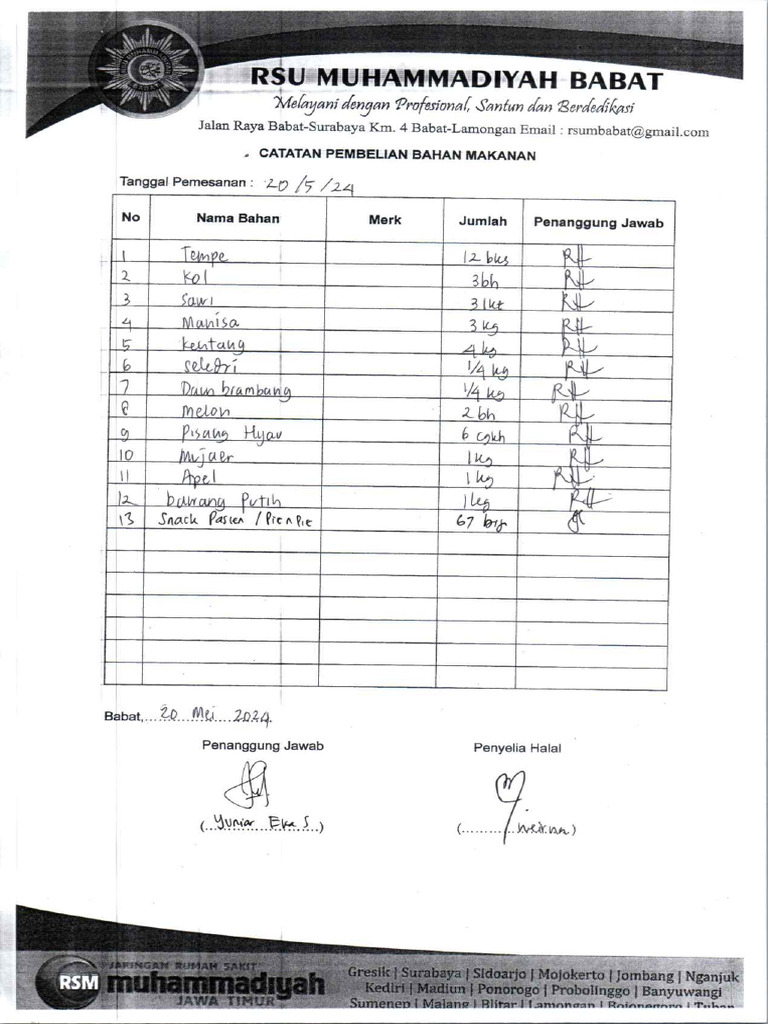 RSU MUHAMMADIYAH BABAT
Melayani dengan Profesional, Santun dan Berdedikasi
Jalan Raya Babat-Surabaya Km. 4 Babat-Lamongan Email : rsumbabat@gmail.com
CATATAN PEMBELIAN BAHAN MAKANAN
Tanggal Pemesanan : 20/5/24
No Nama Bahan Merk Jumlah Penanggung Jawab
1 Tempe 12 bks RH
2 Kol 3 bh RH
3 Sawi 3 ikt RH
4 Manisa 3 kg RH
5 kentang 4 kg RH
6 seledri 1/4 kg RH
7 Daun brambang 1/4 kg RH
8 Melon 2 bh RH
9 Pisang Hijau 6 RH
10 Mujaer 1 kg RH
11 Apel 1 kg RH
12 bawang Putih 1 kg RH
13 Snack Pasien / Pie n Pie 67
Babat, 20 Mei 2024.
Penanggung Jawab Penyelia Halal
(Yuniar Eka S)
RSM
JARINGAN RUMAH SAKIT
muhammadiyah
JAWA TIMUR
Gresik | Surabaya | Sidoarjo | Mojokerto | Jombang | Nganjuk
Kediri | Madiun | Ponorogo | Probolinggo | Banyuwangi
Sumenep | Malang | Blitar | Lamongan | Bojonegoro | Tuban